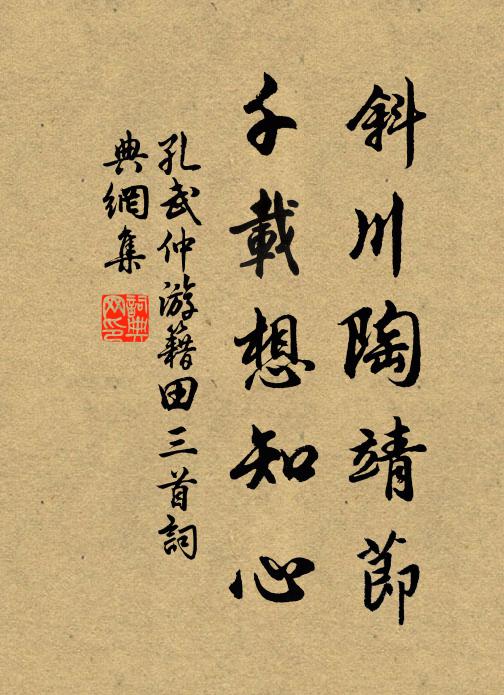 斜川陶靖節
千載想知心
孔武仲游籍田三首詞
典網集
詞典網印